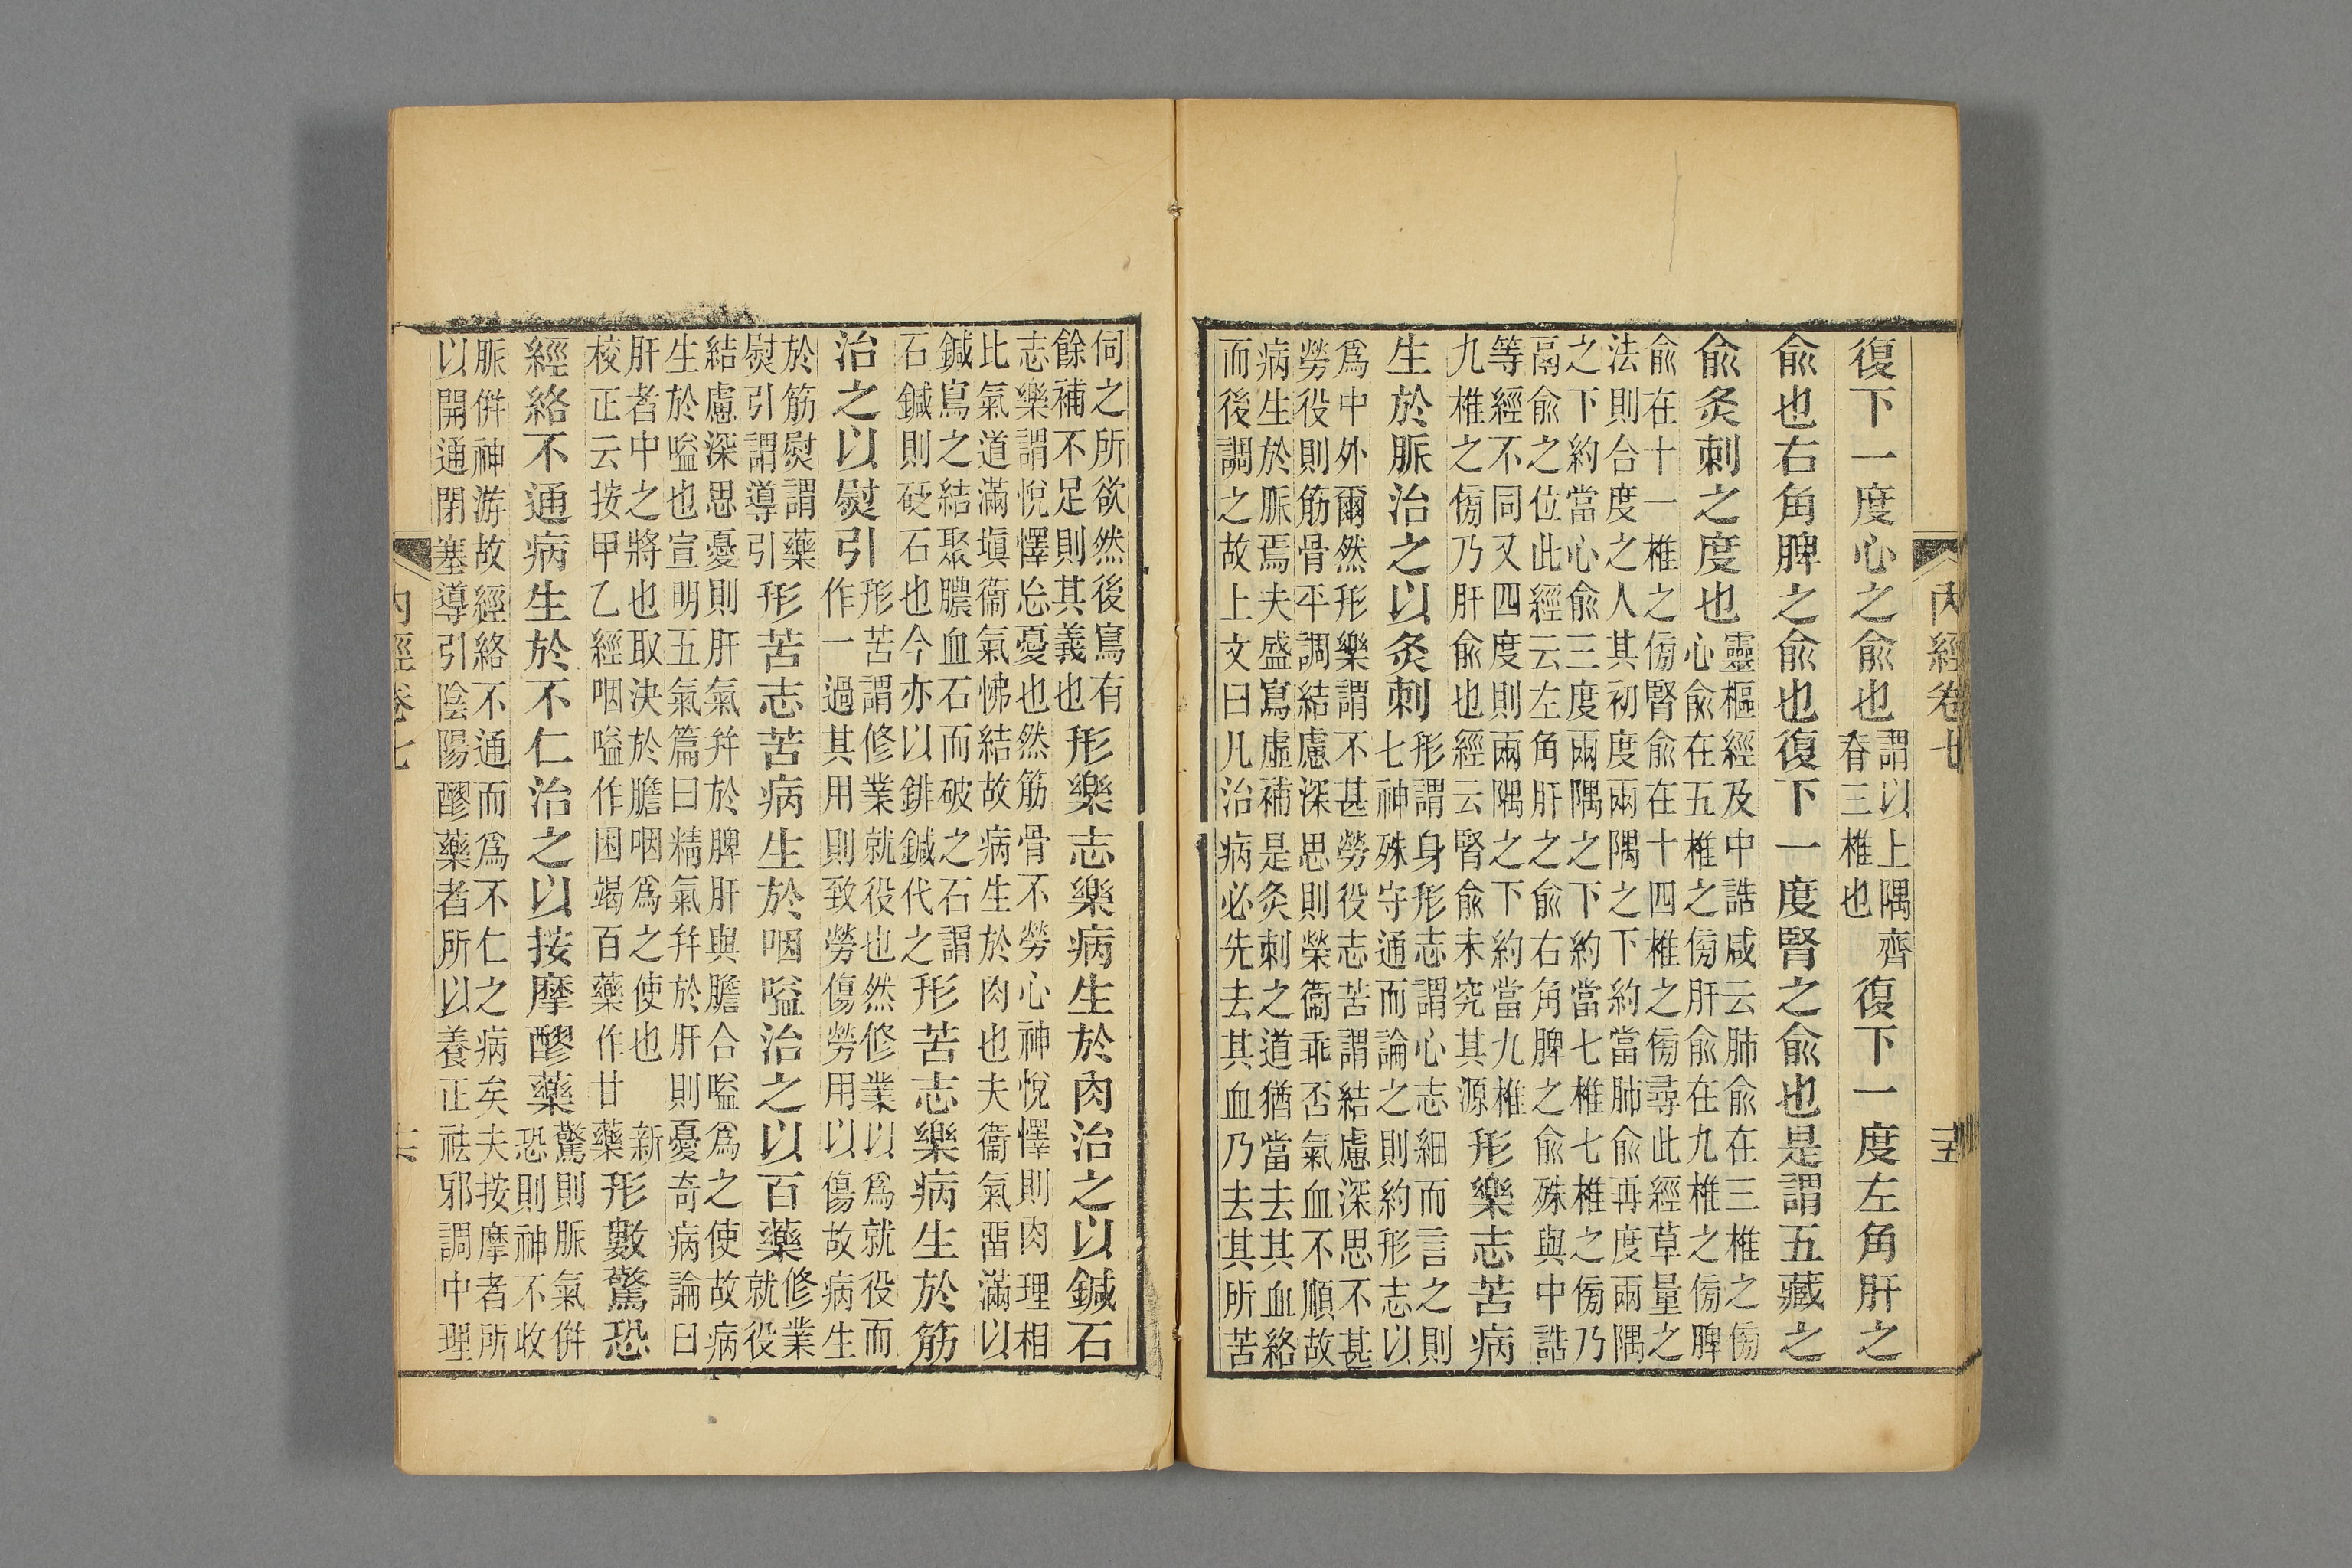 內經卷七
復下一度心之俞也謂以上隅齊脊三椎也復下一度左角肝之
俞也右角脾之俞也復下一度腎之俞也是謂五藏之
俞灸刺之度也靈樞經及中誥咸云肺俞在三椎之傍心俞在五椎之傍肝俞在九椎之傍脾
俞在十一椎之傍腎俞在十四椎之傍尋此經草量之
法則合度之人其初度兩隅之下約當肺俞再度兩隅
之下約當心俞三度兩隅之下約當七椎七椎之傍乃
鬲俞之位此經云左角肝之俞右角脾之俞殊與中誥
等經不同又四度則兩隅之下約當九椎九椎之傍乃肝俞也經云腎俞未究其源形樂志苦病
生於脈治之以灸刺形謂身形志謂心志細而言之則七神殊守通而論之則約形志以
爲中外爾然形樂謂不甚勞役志苦謂結慮深思不甚
勞役則筋骨平調結慮深思則榮衞乖否氣血不順故
病生於脈焉夫盛寫虛補是灸刺之道猶當去其血絡
而後調之故上文曰凡治病必先去其血乃去其所苦
伺之所欲然後寫有餘補不足則其義也形樂志樂病生於肉治之以鍼石
志樂謂悅懌忘憂也然筋骨不勞心神悅懌則肉理相
比氣道滿塡衞氣怫結故病生於肉也夫衞氣畱滿以
鍼寫之結聚膿血石而破之石謂石鍼則砭石也今亦以鈹鍼代之形苦志樂病生於筋
治之以熨引形苦謂修業就役也然修業以爲就役而作一過其用則致勞傷勞用以傷故病生
於筋熨謂藥熨引謂導引形苦志苦病生於咽嗌治之以百藥修業就役
結慮深思憂則肝氣幷於脾肝與膽合嗌爲之使故病
生於嗌也宣明五氣篇曰精氣幷於肝則憂奇病論曰
肝者中之將也取決於膽咽爲之使也新校正云按甲乙經咽嗌作困竭百藥作甘藥形數驚恐
經絡不通病生於不仁治之以按摩醪藥驚則脈氣併恐則神不收
脈併神游故經絡不通而爲不仁之病矣夫按摩者所
以開通閉塞導引陰陽醪藥者所以養正祛邪調中理
內經卷七